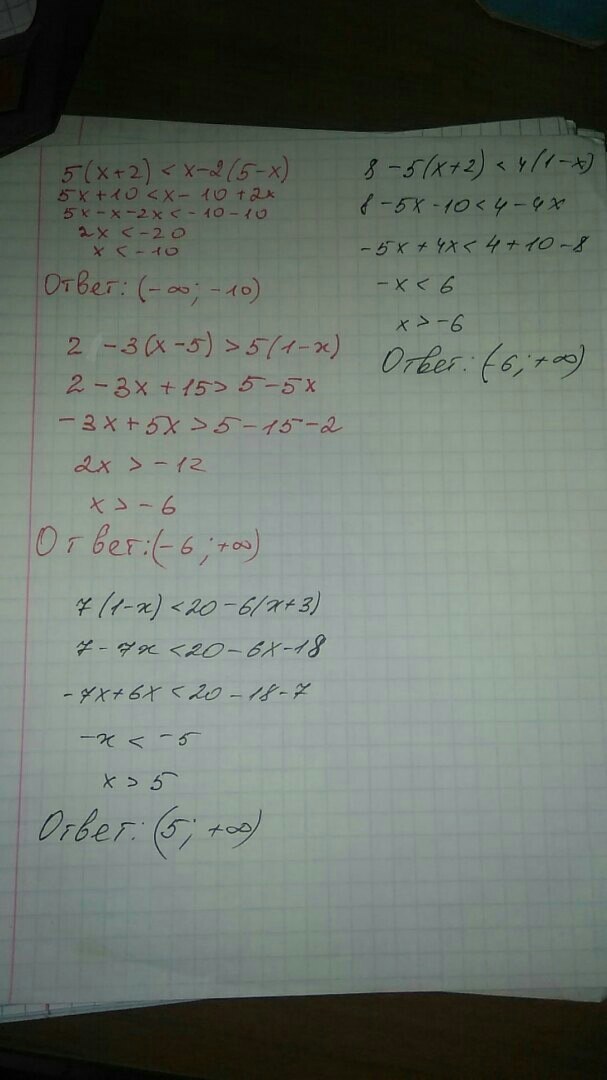 5(x+2) < x-2(5-x)
5x+10 < x-10+2x
5x-x-2x < -10-10
2x < -20
x < -10
Ответ: (-∞; -10)
2 -3(x-5) > 5(1-x)
2-3x+15 > 5-5x
-3x+5x > 5-15-2
2x > -12
x > -6
Ответ: (-6; +∞)
7(1-x) < 20-6(x+3)
7-7x < 20-6x-18
-7x+6x < 20-18-7
-x < -5
x > 5
Ответ: (5; +∞)
8-5(x+2) < 4(1-x)
8-5x-10 < 4-4x
-5x+4x < 4+10-8
-x < 6
x > -6
Ответ: (-6; +∞)